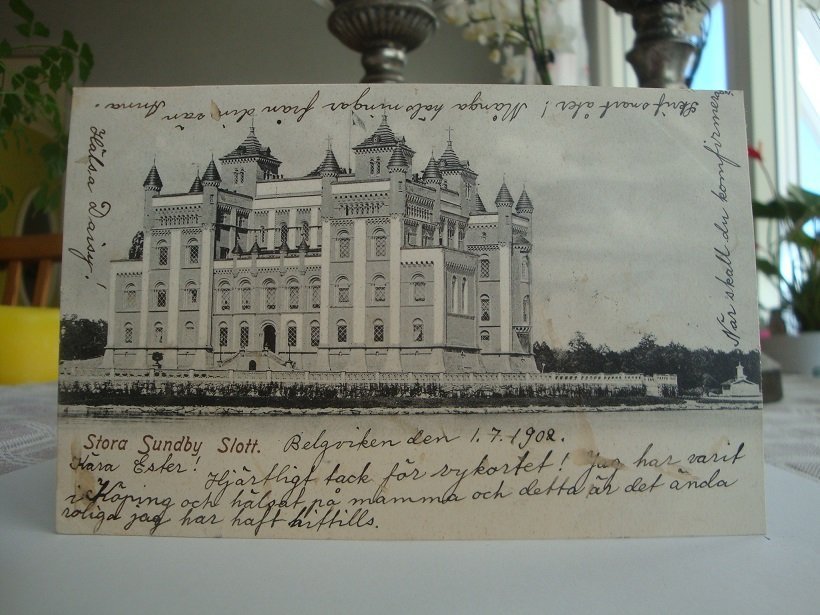 Stora Sundby Slott. Belgviken den 1.7.1902.
Kära Ester!
Hjärtligt tack för vykortet! Jag har varit
i Köping och hälsat på mamma och detta är det ända
roliga jag har haft hittills.
När skall du komfirmera
Skrif snart åter! Många hälsningar från din vän Anna.
Hälsa Daisy!